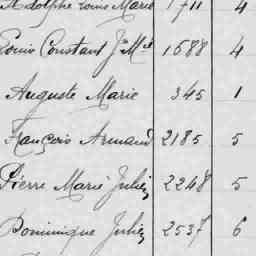 Adolphe Louis Marie 1711 4
Louis Constant J M 1688 4
Auguste Marie 345 1
François Armand 2185 5
Pierre Marie Julien 2248 5
Dominique Julien 2537 6